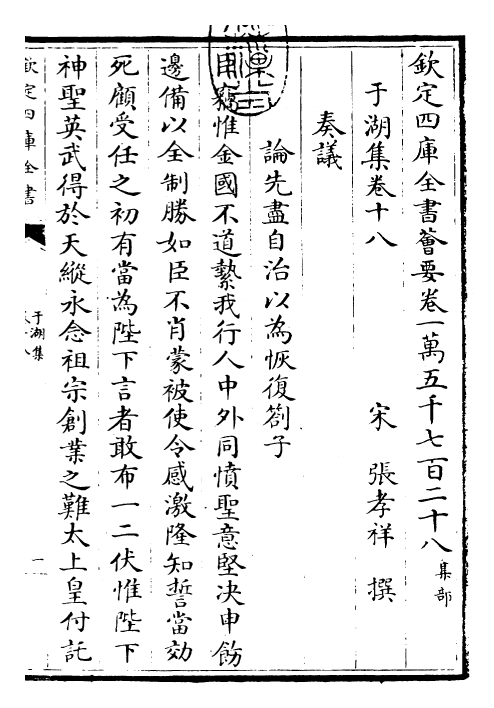 欽定四庫全書薈要卷一萬五千七百二十八 集部
于湖集卷十八
宋 張孝祥 撰
奏議
論先盡自治以為恢復劄子
臣竊惟金國不道縶我行人中外同憤聖意堅決申飭
邊備以全制勝如臣不肖蒙被使令感激隆知誓當効
死顧受任之初有當為陛下言者敢布一二伏惟陛下
神聖英武得於天縱永念祖宗創業之難太上皇付託
欽定四庫全書
于湖集
卷十八
一